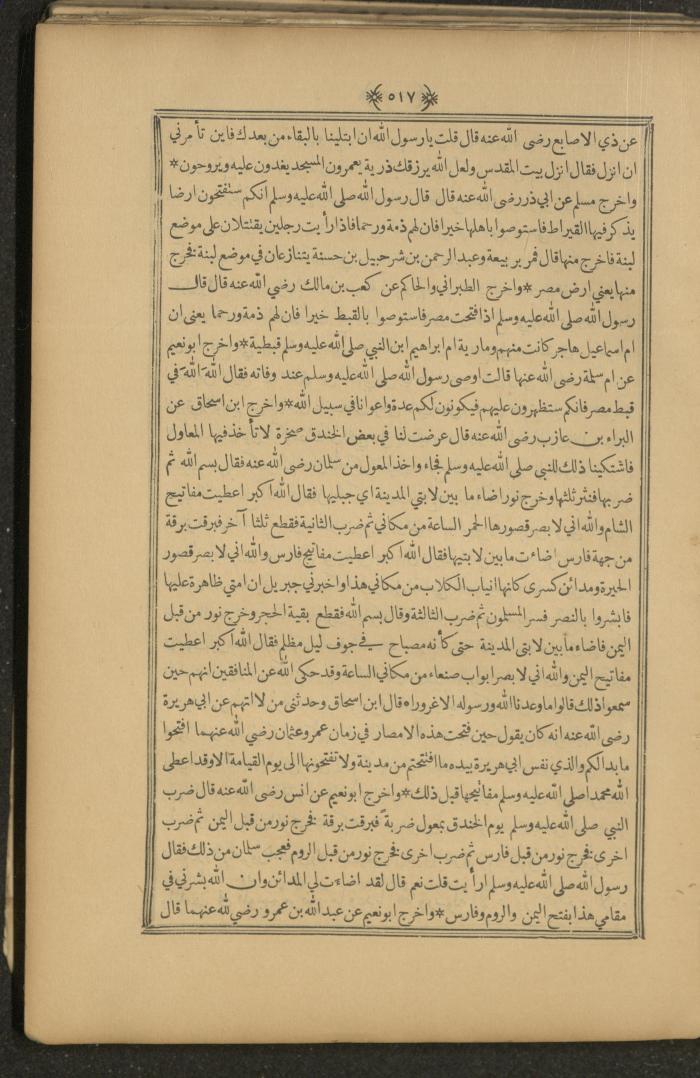 ٥١٧
عن ذي الاصابع رضى الله عنه قال قلت يا رسول الله ان ابتلينا بالبقاء من بعدك فاين تأمرني
ان انزل فقال انزل بيت المقدس ولعل الله يرزقك ذرية يعمرون المسجد يغدون عليه ويروحون *
واخرج مسلم عن ابي ذر رضى الله عنه قال قال رسول الله صلى الله عليه وسلم انكم ستفتحون ارضا
يذكر فيها القيراط فاستوصوا باهلها خيرا فان لهم ذمة ورحما فاذا رأيت رجلين يقتتلان على موضع
لبنة فاخرج منها قال فمر بربيعة وعبد الرحمن بن شرحبيل بن حسنة يتنازعان في موضع لبنة فخرج
منها يعني ارض مصر * واخرج الطبراني والحاكم عن كعب بن مالك رضي الله عنه قال قال
رسول الله صلى الله عليه وسلم اذا فتحت مصر فاستوصوا بالقبط خيرا فان لهم ذمة ورحما يعنى ان
ام اسماعيل هاجر كانت منهم ومارية ام ابراهيم ابن النبي صلى الله عليه وسلم قبطية * واخرج ابو نعيم
عن ام سلمة رضى الله عنها قالت اوصى رسول الله صلى الله عليه وسلم عند وفاته فقال اللهَ اللهَ في
قبط مصر فانكم ستظهرون عليهم فيكونون لكم عدة واعوانا في سبيل الله * واخرج ابن اسحاق عن
البراء بن عازب رضى الله عنه قال عرضت لنا في بعض الخندق صخرة لا تأخذ فيها المعاول
فاشتكينا ذلك للنبي صلى الله عليه وسلم فجاء واخذ المعول من سلمان رضى الله عنه فقال بسم الله ثم
ضربها فنثر ثلثها وخرج نور اضاء ما بين لابتي المدينة اي جبليها فقال الله اكبر اعطيت مفاتيح
الشام والله اني لا بصر قصورها الحمر الساعة من مكاني ثم ضرب الثانية فقطع ثلثا آخر فبرقت برقة
من جهة فارس اضاءت ما بين لابتيها فقال الله اكبر اعطيت مفاتيح فارس والله اني لا بصر قصور
الحيرة ومدائن كسرى كانها انياب الكلاب من مكاني هذا واخبرني جبريل ان امتي ظاهرة عليها
فابشروا بالنصر فسر المسلمون ثم ضرب الثالثة وقال بسم الله فقطع بقية الحجر وخرج نور من قبل
اليمن فاضاء ما بين لابتى المدينة حتى كأنه مصباح في جوف ليل مظلم فقال الله اكبر اعطيت
مفاتيح اليمن والله اني لا بصر ابواب صنعاء من مكاني الساعة وقد حكى الله عن المنافقين انهم حين
سمعوا ذلك قالوا ما وعدنا الله ورسوله الا غرورا ه قال ابن اسحاق وحدثنى من لا اتهم عن ابي هريرة
رضى الله عنه انه كان يقول حين فتحت هذه الامصار في زمان عمر وعثمان رضي الله عنهما افتحوا
ما بدا لكم والذي نفس ابي هريرة بيده ما افتتحتم من مدينة ولا تفتحونها الى يوم القيامة الا وقد اعطى
الله محمدا صلى الله عليه وسلم مفاتيحها قبل ذلك * واخرج ابو نعيم عن انس رضى الله عنه قال ضرب
النبي صلى الله عليه وسلم يوم الخندق بمعول ضربةً فبرقت برقة فخرج نور من قبل اليمن ثم ضرب
اخرى فخرج نور من قبل فارس ثم ضرب اخرى فخرج نور من قبل الروم فعجب سلمان من ذلك فقال
رسول الله صلى الله عليه وسلم ارأيت قلت نعم قال لقد اضاءت لي المدائن وان الله بشرني في
مقامي هذا بفتح اليمن والروم وفارس * واخرج ابو نعيم عن عبد الله بن عمرو رضي لله عنهما قال